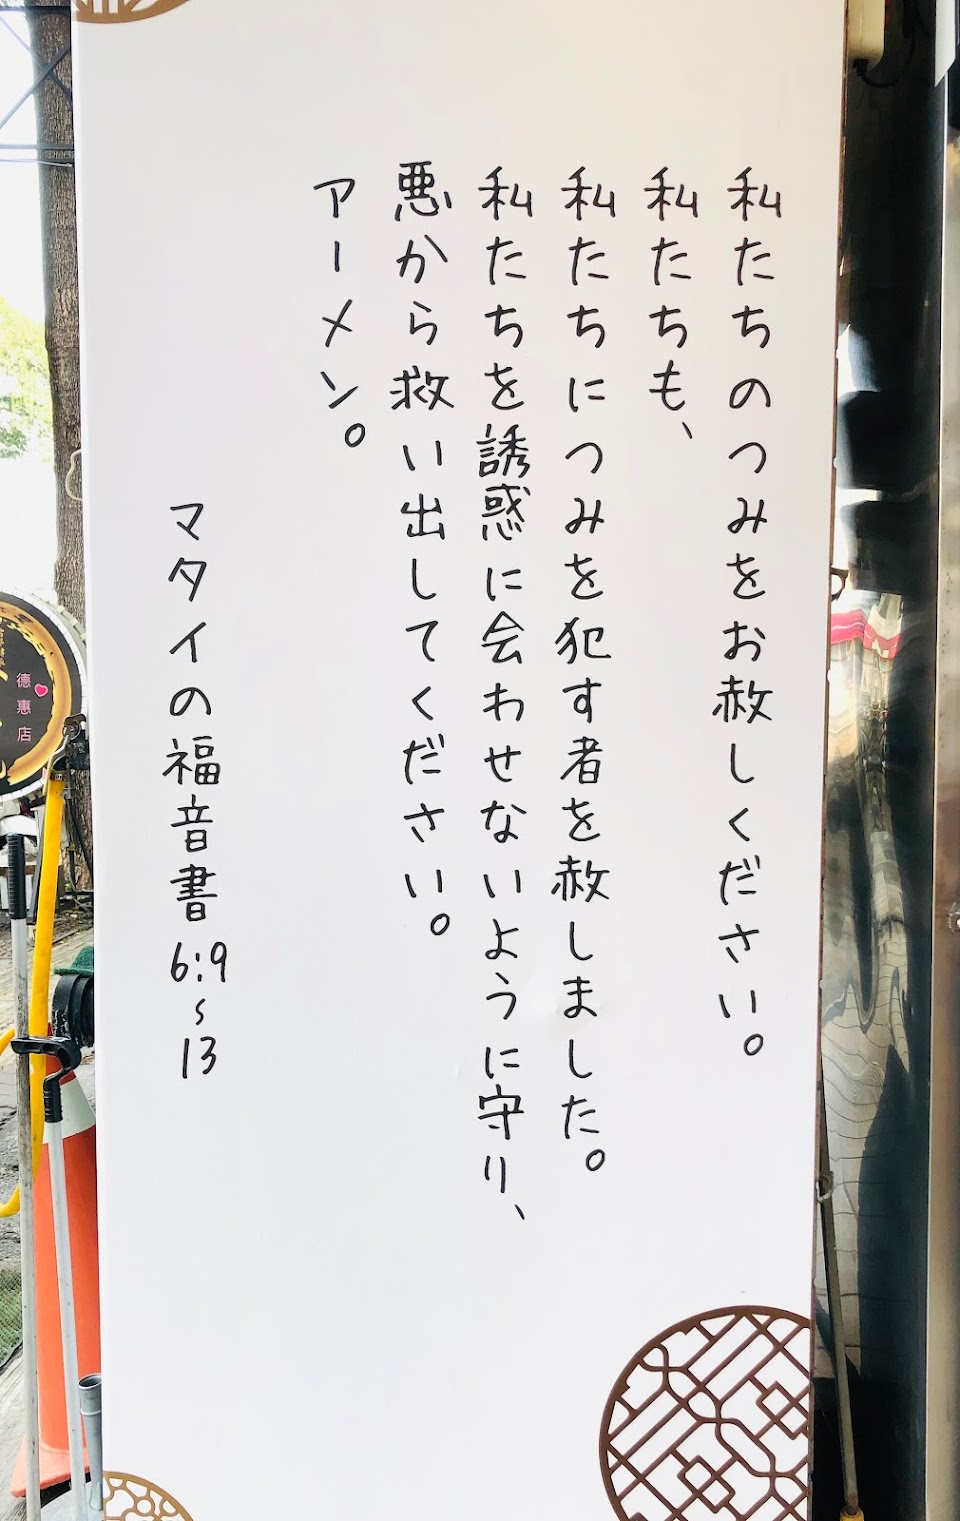 私たちのつみをお赦しください。
私たちも、
私たちにつみを犯す者を赦しました。
私たちを誘惑に会わせないように守り、
悪から救い出してください。
アーメン。
マタイの福音書6:9~13
德惠店